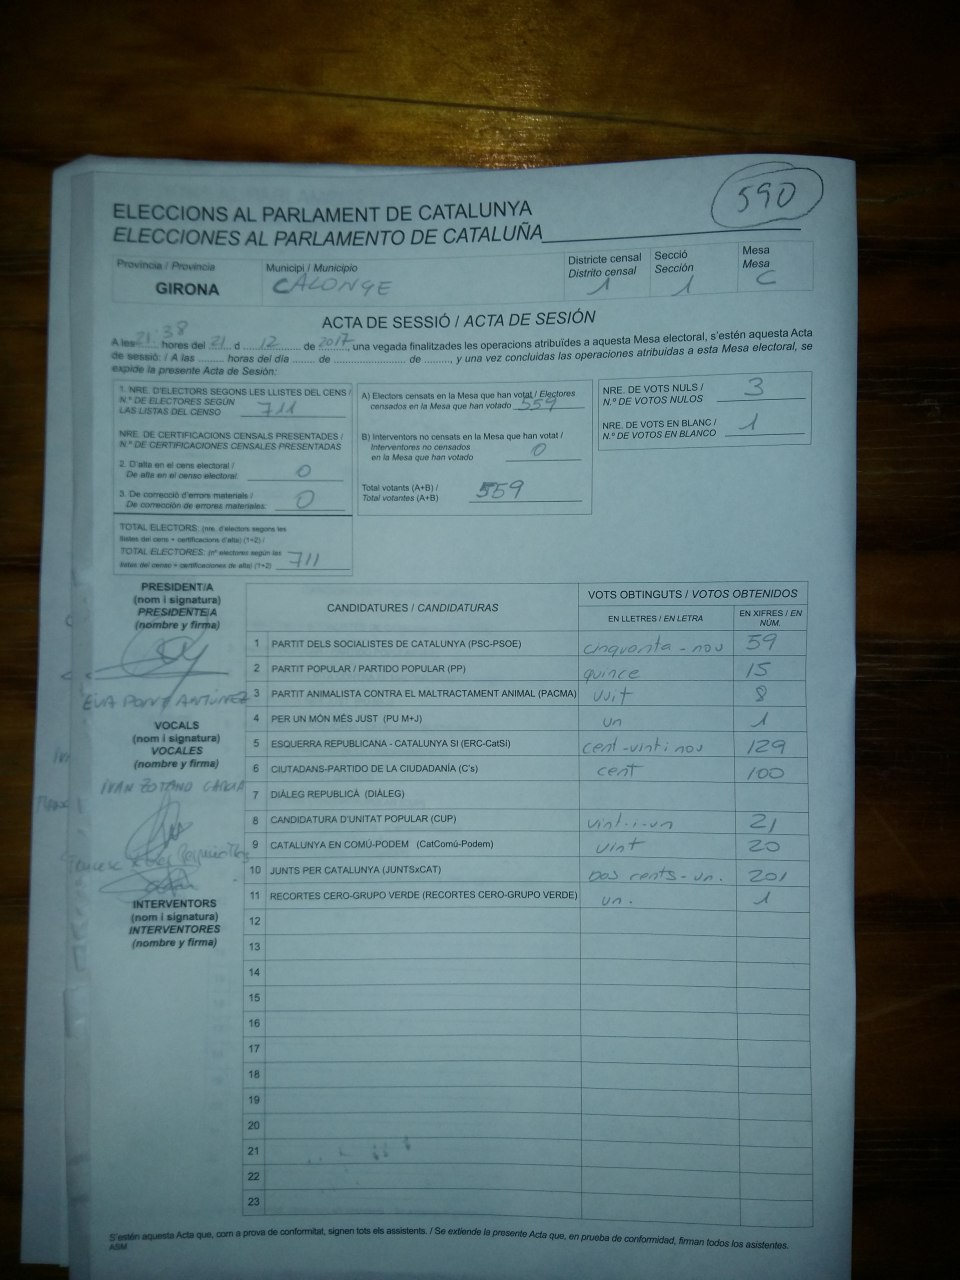 590
ELECCIONS AL PARLAMENT DE CATALUNYA
ELECCIONES AL PARLAMENTO DE CATALUÑA
Provincia / Provincia
GIRONA
Municipi / Municipio
CALONGE
Districte censal
Distrito censal
1
Secció
Sección
1
Mesa
Mesa
C
ACTA DE SESSIÓ / ACTA DE SESIÓN
A les 21:38 hores del 21 d 12 de 2017, una vegada finalitzades les operacions atribuïdes a aquesta Mesa electoral, s'estén aquesta Acta
de sessió: / A las ........ horas del día ........ de ........................ de ........, y una vez concluidas las operaciones atribuidas a esta Mesa electoral, se
expide la presente Acta de Sesión:
1. NRE. D'ELECTORS SEGONS LES LLISTES DEL CENS /
N.º DE ELECTORES SEGÚN
LAS LISTAS DEL CENSO 711
NRE. DE CERTIFICACIONS CENSALS PRESENTADES /
N.º DE CERTIFICACIONES CENSALES PRESENTADAS
2. D'alta en el cens electoral /
De alta en el censo electoral. 0
3. De correcció d'errors materials /
De corrección de errores materiales: 0
TOTAL ELECTORS: (nre. d'electors segons les
llistes del cens + certificacions d'alta) (1+2) /
TOTAL ELECTORES: (nº electores según las
listas del censo + certificaciones de alta) (1+2) 711
A) Electors censats en la Mesa que han votat / Electores
censados en la Mesa que han votado 559
B) Interventors no censats en la Mesa que han votat /
Interventores no censados
en la Mesa que han votado 0
Total votants (A+B) /
Total votantes (A+B) 559
NRE. DE VOTS NULS /
N.º DE VOTOS NULOS 3
NRE. DE VOTS EN BLANC /
N.º DE VOTOS EN BLANCO 1
PRESIDENT/A
(nom i signatura)
PRESIDENTE/A
(nombre y firma)
EVA PONT ANTÚNEZ
VOCALS
(nom i signatura)
VOCALES
(nombre y firma)
IVAN GARCIA
INTERVENTORS
(nom i signatura)
INTERVENTORES
(nombre y firma)
CANDIDATURES / CANDIDATURAS
VOTS OBTINGUTS / VOTOS OBTENIDOS
EN LLETRES / EN LETRA
EN XIFRES / EN NÚM.
1 PARTIT DELS SOCIALISTES DE CATALUNYA (PSC-PSOE) cinquanta-nou 59
2 PARTIT POPULAR / PARTIDO POPULAR (PP) quince 15
3 PARTIT ANIMALISTA CONTRA EL MALTRACTAMENT ANIMAL (PACMA) vuit 8
4 PER UN MÓN MÉS JUST (PU M+J) un 1
5 ESQUERRA REPUBLICANA - CATALUNYA SI (ERC-CatSí) cent-vint i nou 129
6 CIUTADANS-PARTIDO DE LA CIUDADANÍA (C's) cent 100
7 DIÀLEG REPUBLICÀ (DIÀLEG)
8 CANDIDATURA D'UNITAT POPULAR (CUP) vint-i-un 21
9 CATALUNYA EN COMÚ-PODEM (CatComú-Podem) vint 20
10 JUNTS PER CATALUNYA (JUNTSxCAT) Dos cents-un. 201
11 RECORTES CERO-GRUPO VERDE (RECORTES CERO-GRUPO VERDE) un. 1
12
13
14
15
16
17
18
19
20
21
22
23
S'estén aquesta Acta que, com a prova de conformitat, signen tots els assistents. / Se extiende la presente Acta que, en prueba de conformidad, firman todos los asistentes.
ASM